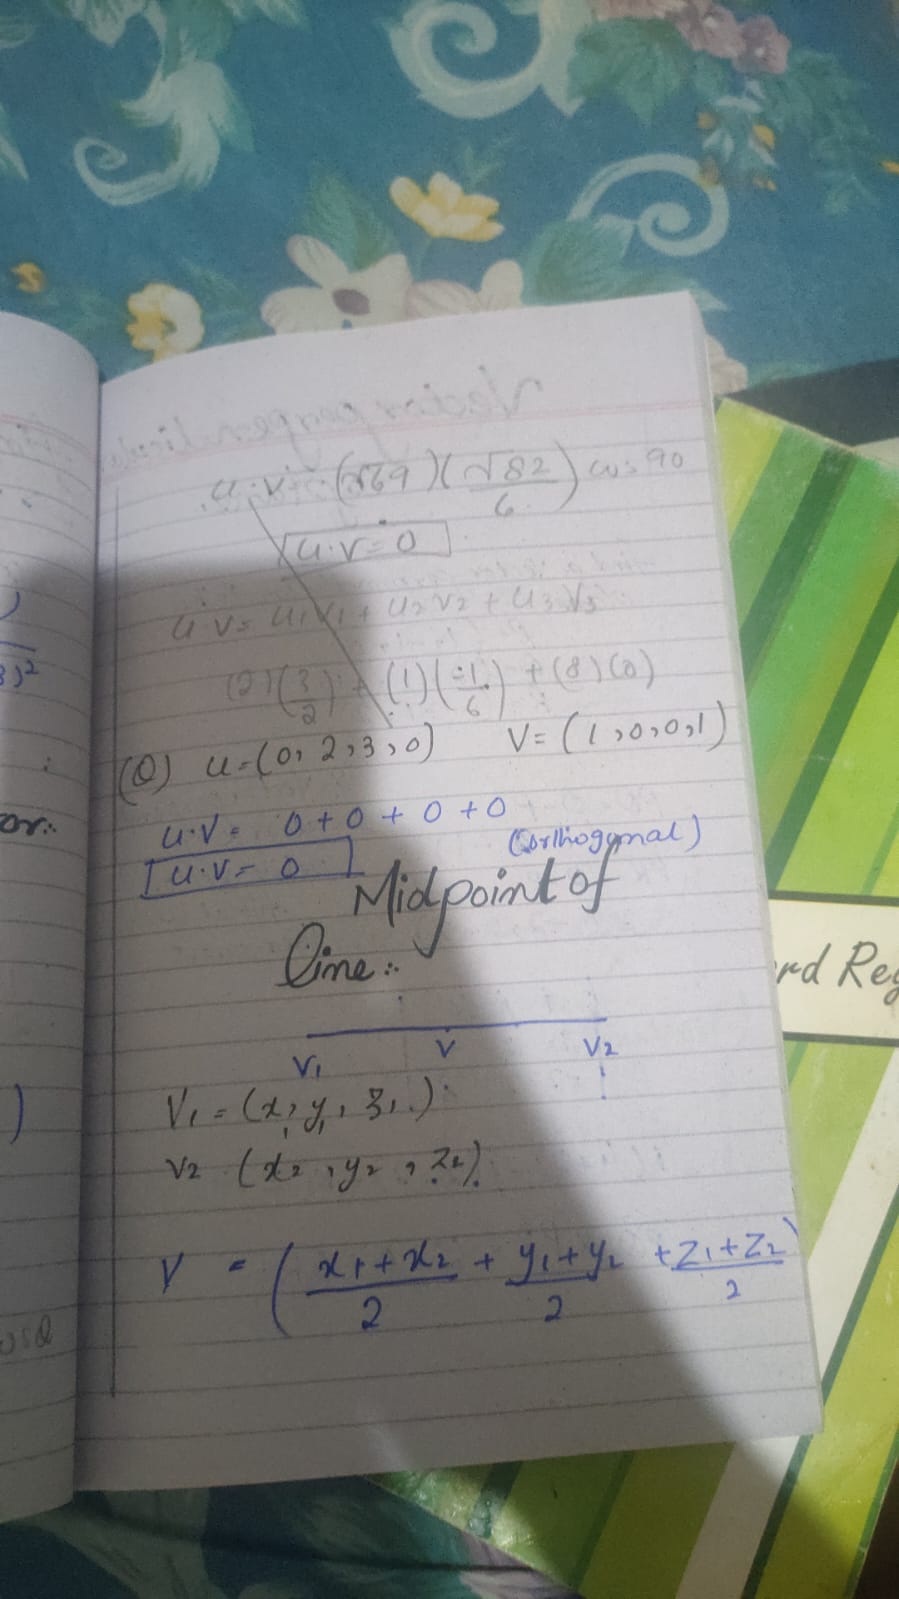 u.v = (√69)(√82/6) cos 90
u.v = 0
u.v = u1v1 + u2v2 + u3v3
(2)(3/2) + (1)(-1/6) + (8)(0)
(Q) u=(0, 2,3,0) V= (1,0,0,1)
u.v = 0+0+0+0
(orthogonal)
u.v = 0
Midpoint of
line:-
V1 V V2
V1 = (x1, y1, z1.)
V2 (x2, y2, z2)
V = ( x1+x2/2 + y1+y2/2 + z1+z2/2 )
3)²
or:-
)
rd Reg